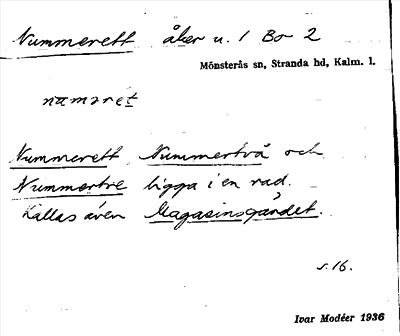 Nummerett åker u. 1 Bo 2
Mönsterås sn, Stranda hd, Kalm. l.
naməret
Nummerett, Nummertvå och
Nummertre ligga i en rad.
Kallas även Magasinsgärdet.
s. 16.
Ivar Modéer 1936